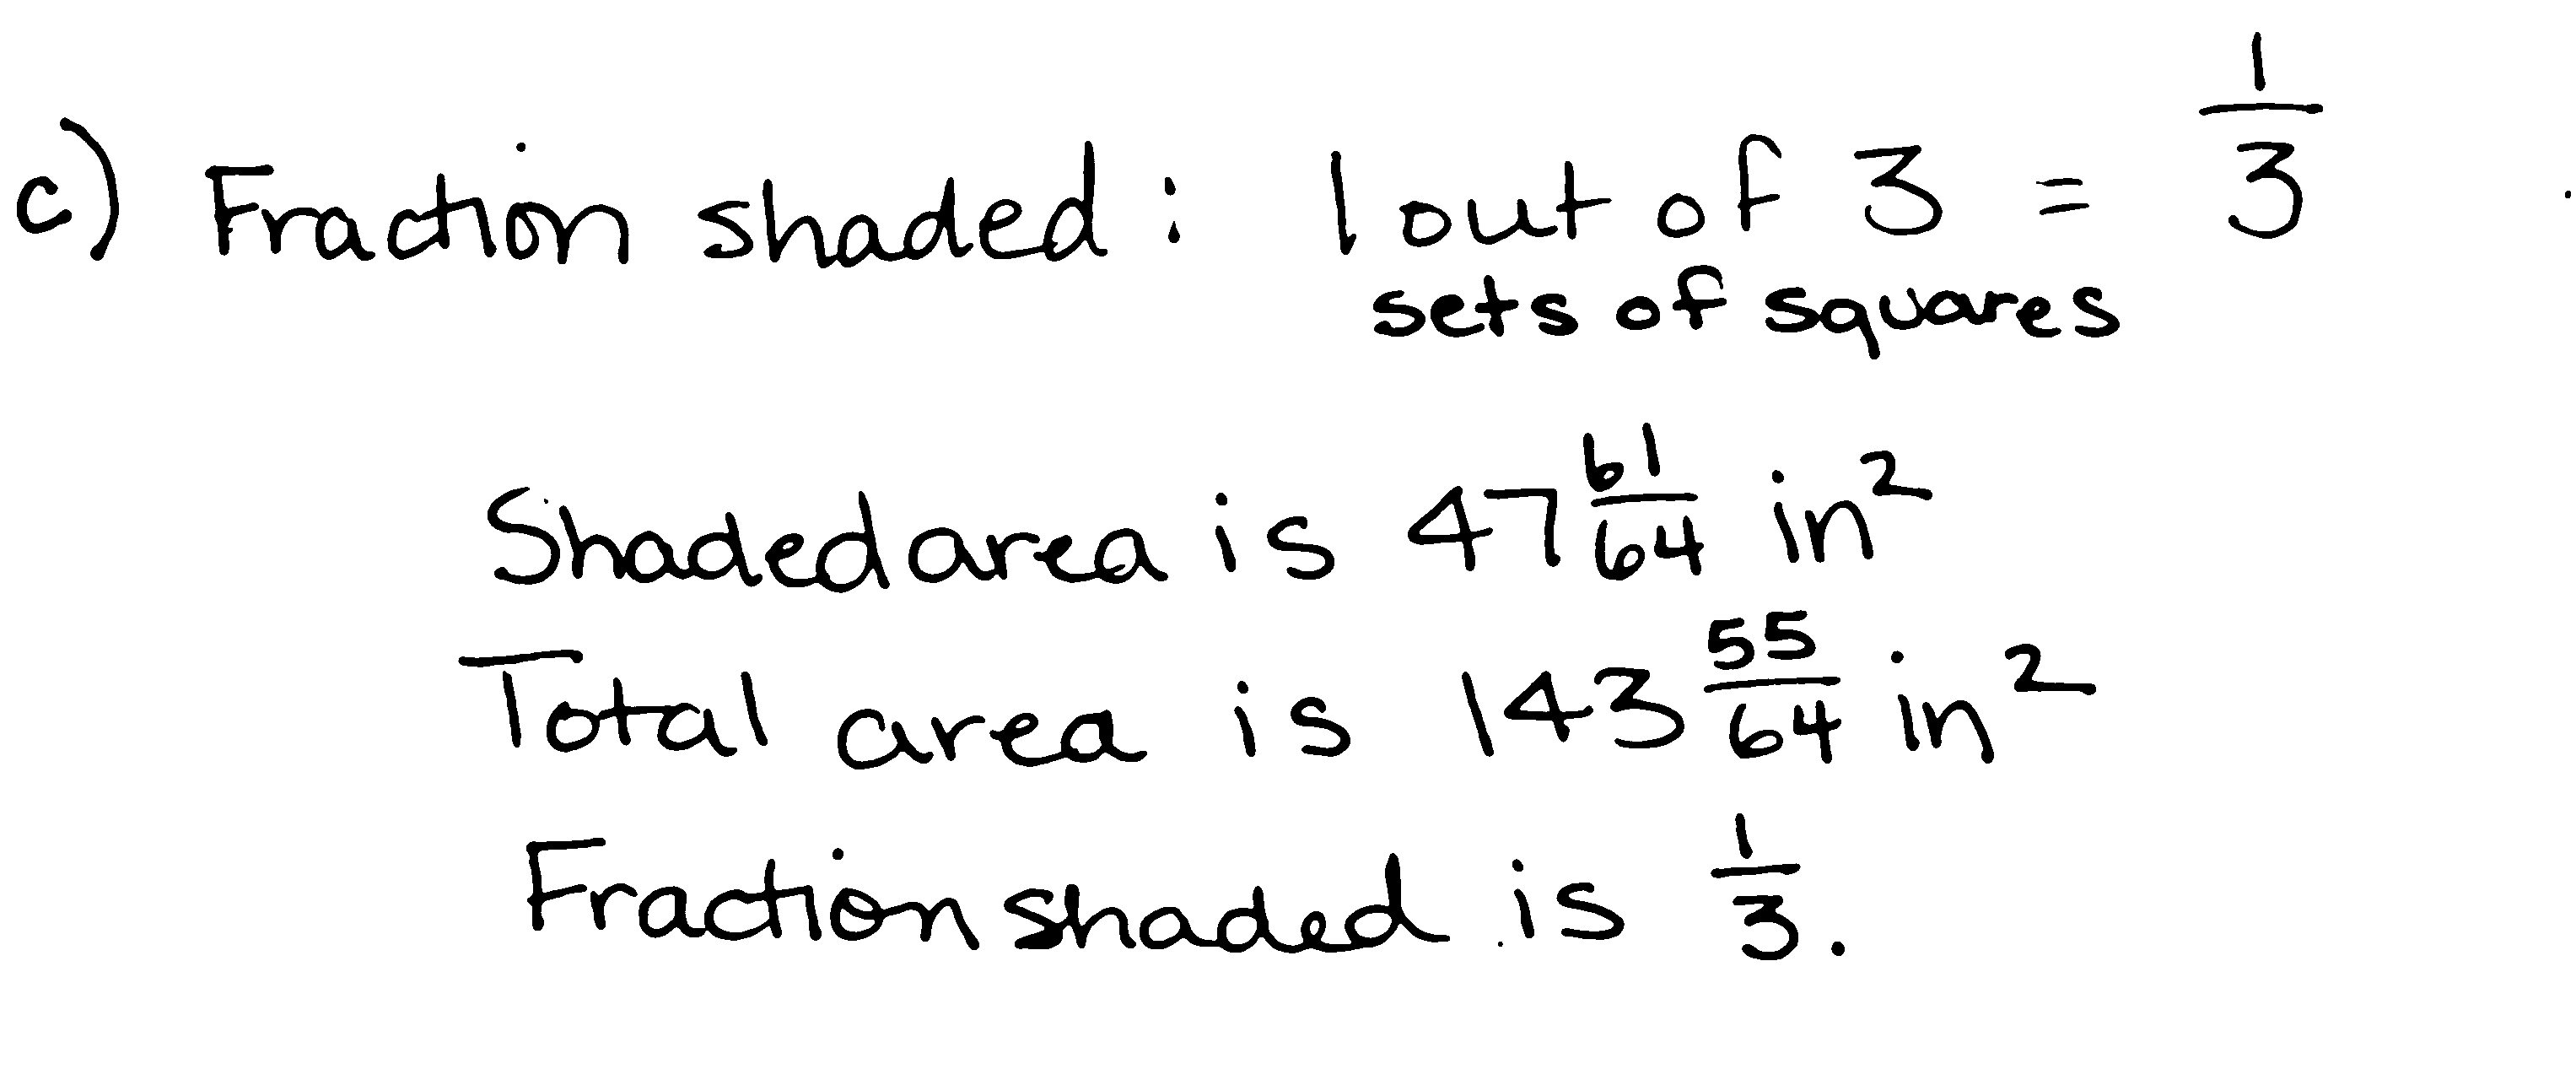 c) Fraction shaded: 1 out of 3 = 1/3
sets of squares
Shaded area is 47 61/64 in²
Total area is 143 55/64 in²
Fraction shaded is 1/3.